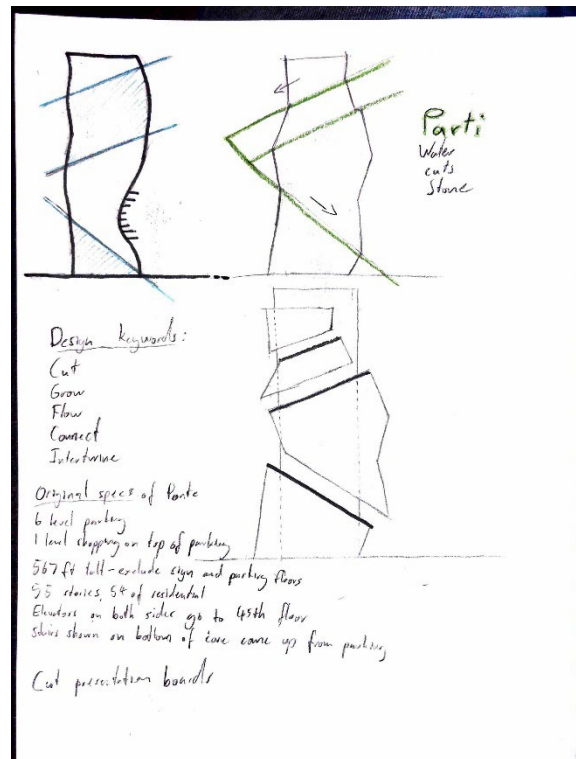 Parti
Water
cuts
Stone
Design keywords:
Cut
Grow
Flow
Connect
Intertwine
Original specs of Ponte
6 level parking
1 level shopping on top of parking
567 ft tall - exclude sign and parking floors
55 stories, 54 of residential
Elevators on both sides go to 45th floor
stairs shown on bottom of core come up from parking
Cut presentation boards